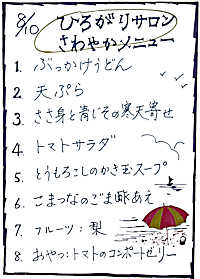 8/10
ひろがりサロン
さわやかメニュー
1. ぶっかけうどん
2. 天ぷら
3. ささ身と青じその寒天寄せ
4. トマトサラダ
5. とうもろこしのかき玉スープ
6. こまつなのごま酢あえ
7. フルーツ:梨
8. おやつ:トマトのコンポートゼリー